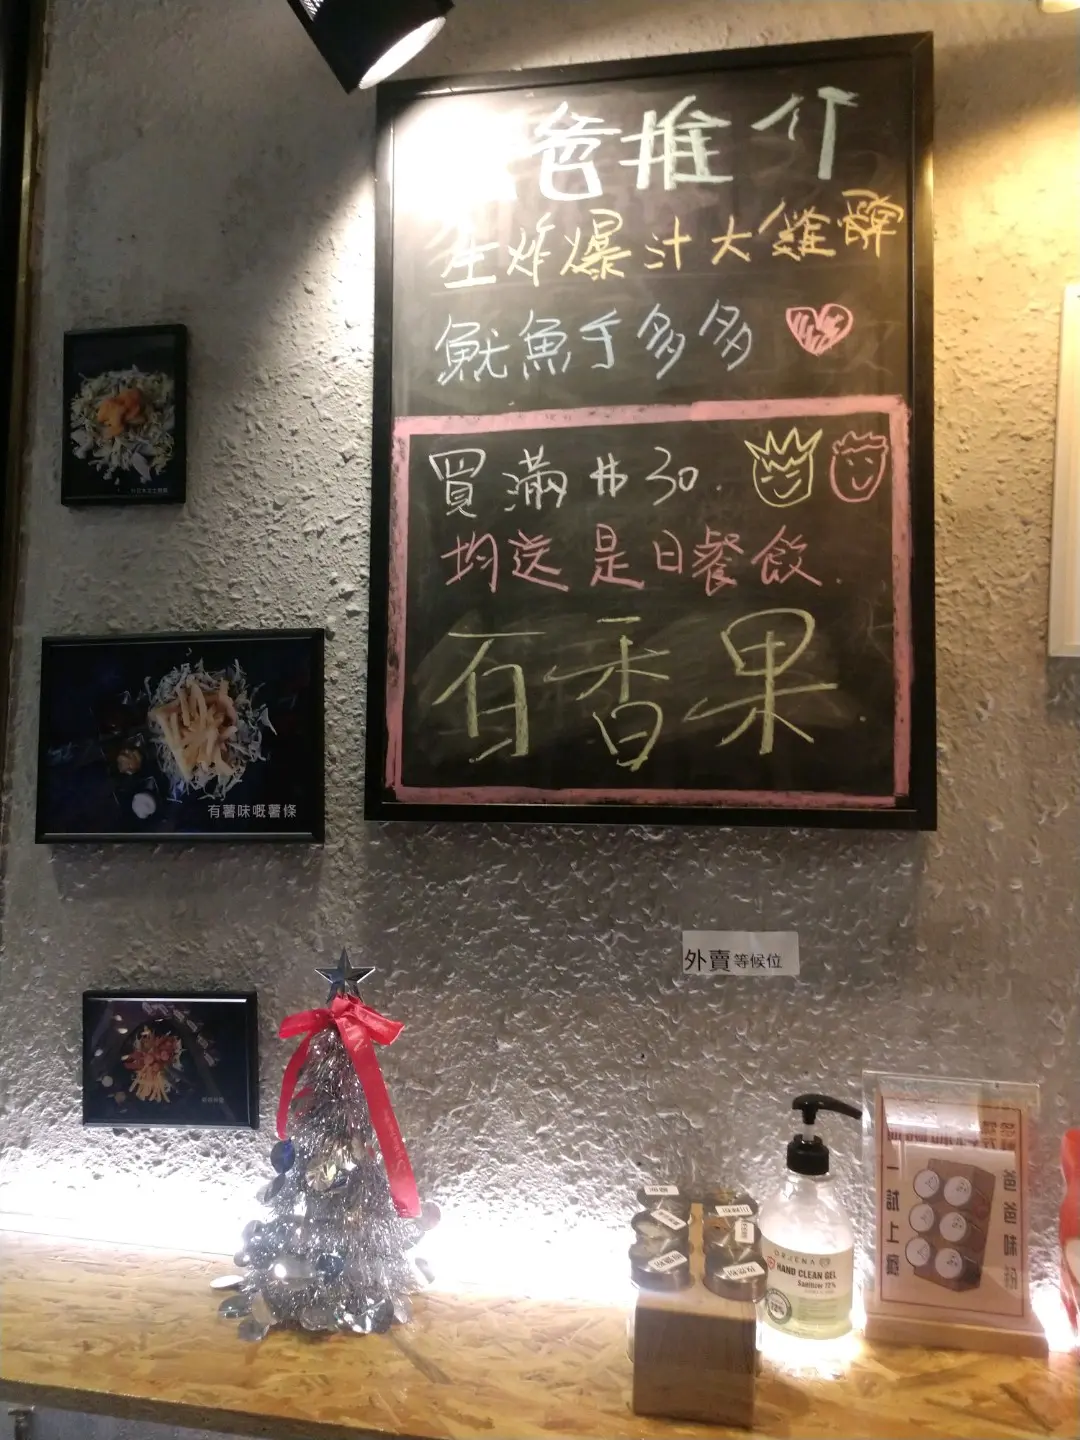 爸推介
生炸爆汁大雞髀
魷魚手多多
買滿 $30.
均送是日餐飲.
百香果
有薯味嘅薯條
外賣等候位
ORJENA
HAND CLEAN GEL
Sanitizer 72%
72%
一試上癮
爸爸味粉